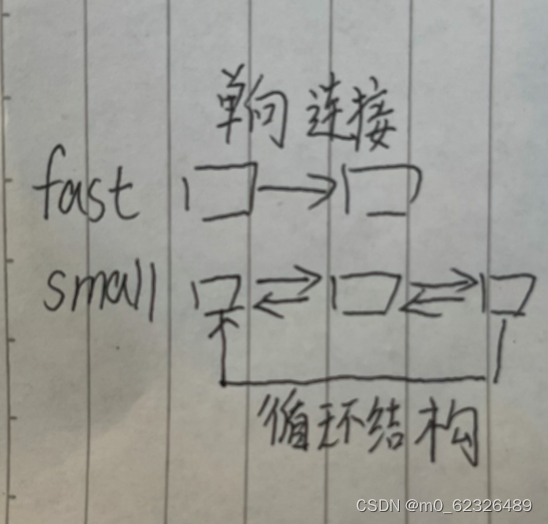 单向连接
fast
small
循环结构
CSDN @m0_62326489